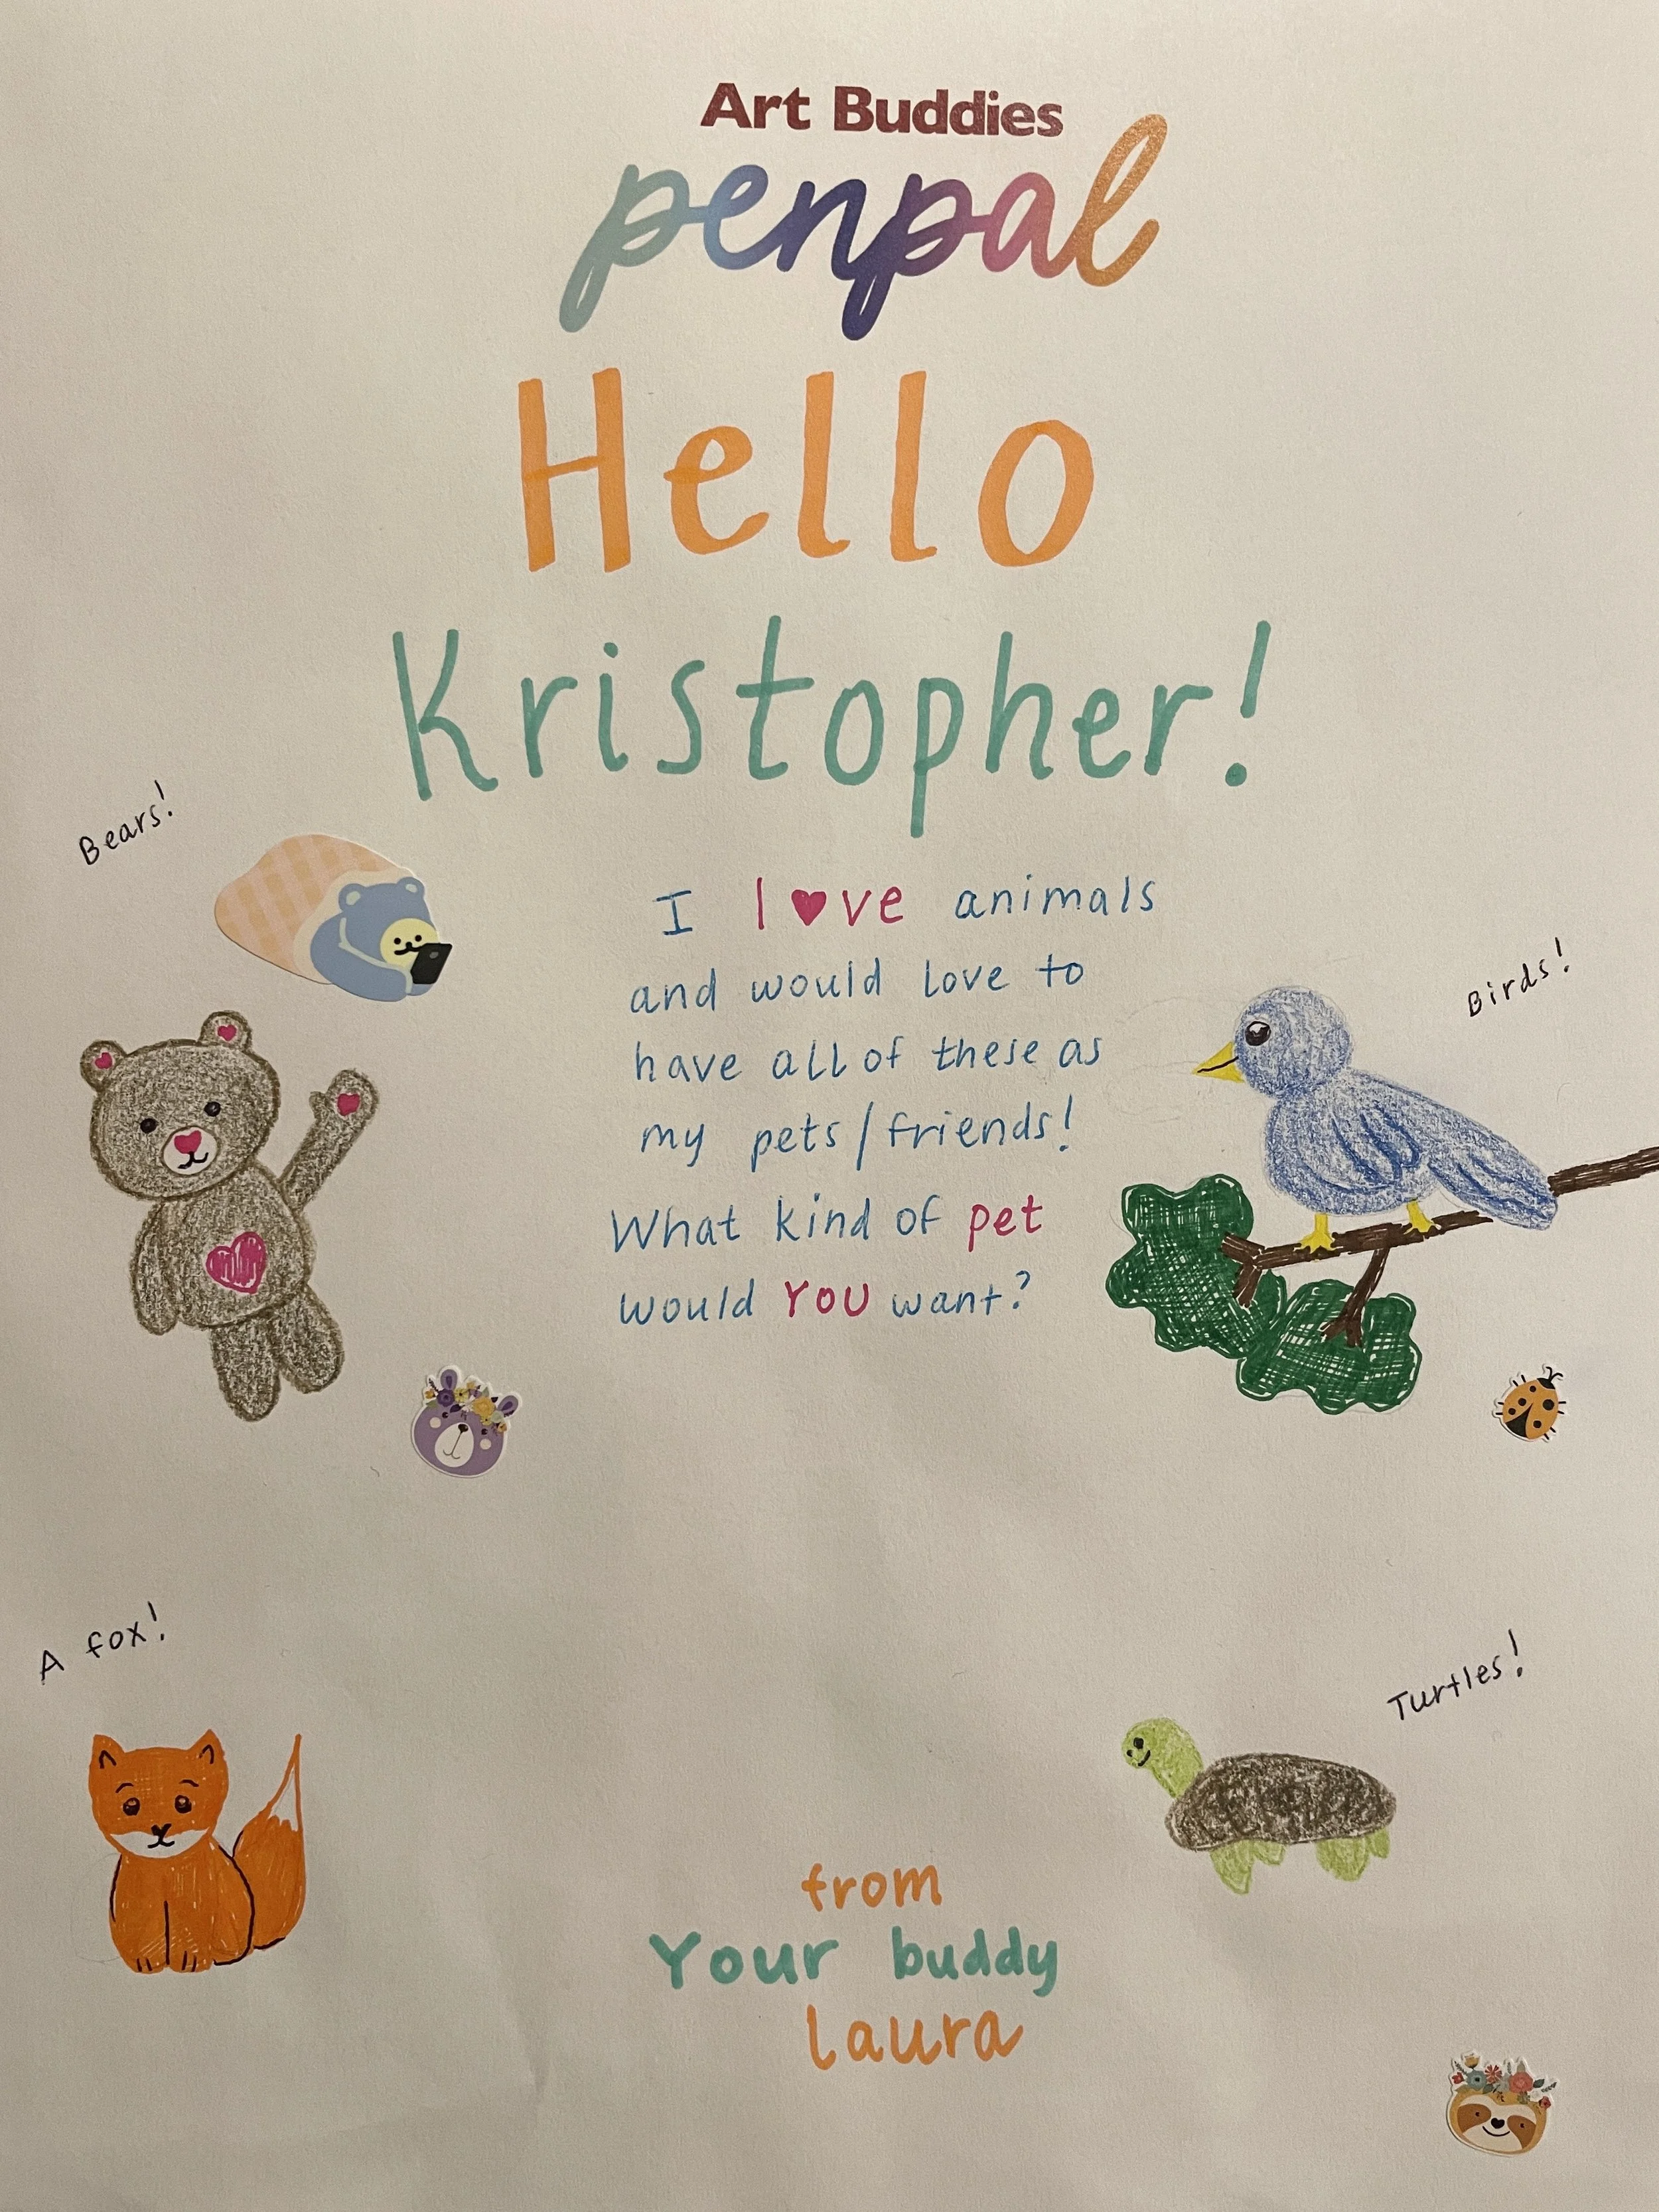 Art Buddies
penpal
Hello
Kristopher!
Bears!
I l♥ve animals
and would love to
have all of these as
my pets/friends!
What kind of pet
would YOU want?
Birds!
A fox!
Turtles!
from
Your buddy
laura